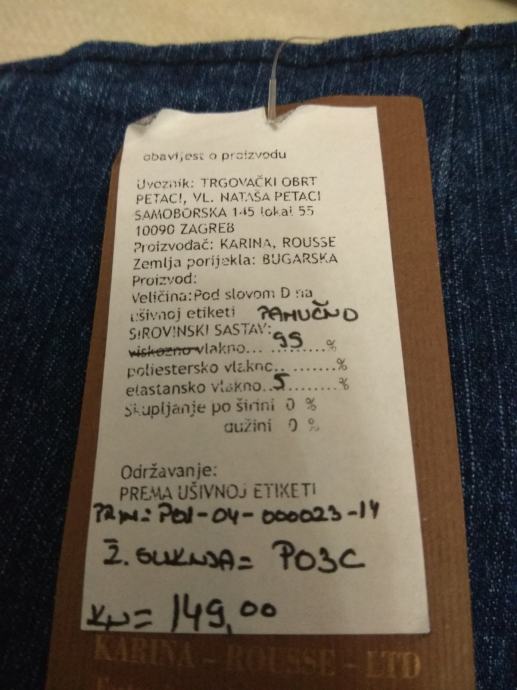 obavijest o proizvodu
Uvoznik: TRGOVAČKI OBRT
PETACI, VL. NATAŠA PETACI
SAMOBORSKA 145 lokal 55
10090 ZAGREB
Proizvođač: KARINA, ROUSSE
Zemlja porijekla: BUGARSKA
Proizvod:
Veličina:Pod slovom D na
ušivnoj etiketi PAMUČNO
SIROVINSKI SASTAV:
viskozno vlakno... 95 ......%
poliestersko vlakno..........%
elastansko vlakno..5........%
Skupljanje po širini 0 %
dužini 0 %
Održavanje:
PREMA UŠIVNOJ ETIKETI
PRIM: P01-04-000023-14
Ž. SUKNJA= P03C
KN= 149,00
KARINA - ROUSSE - LTD